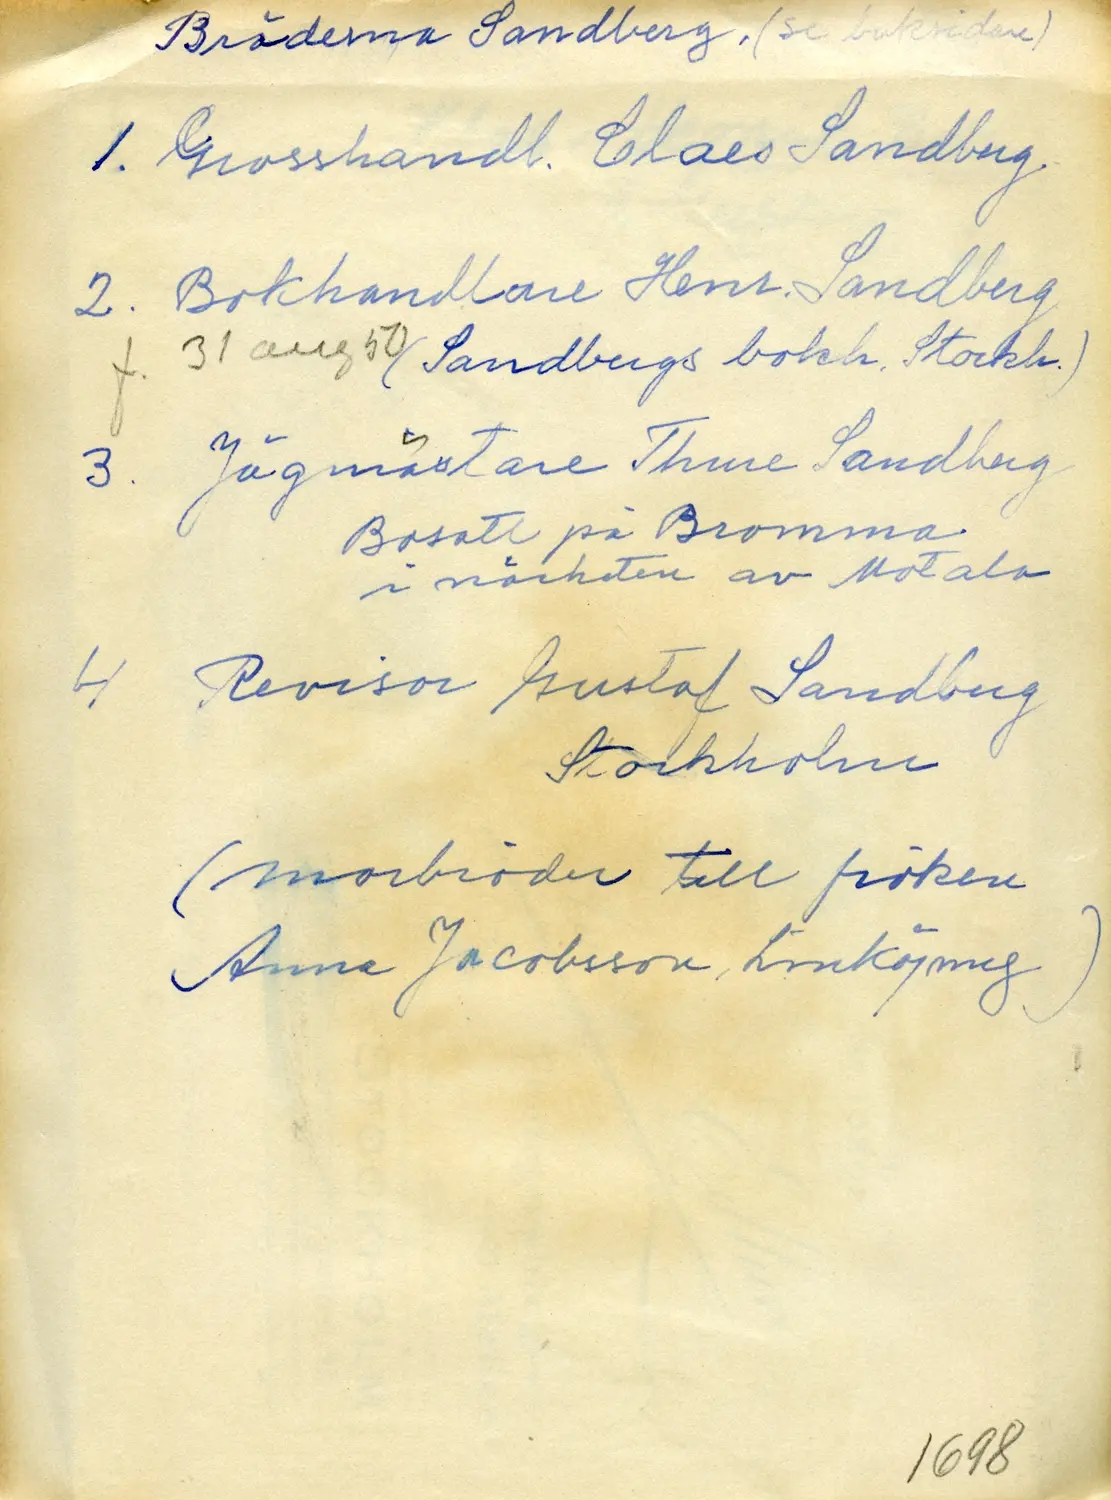 Bröderna Sandberg, (se baksidan)
1. Grosshandl. Claes Sandberg.
2. Bokhandlare Henr. Sandberg
f. 31 aug 50 (Sandbergs bokh. Stockh.)
3. Jägmästare Thure Sandberg
Bosatt på Bromma
i närheten av Motala
4 Revisor Gustaf Sandberg
Stockholm
(morbröder till fröken
Anna Jacobsson, Linköping)
1698